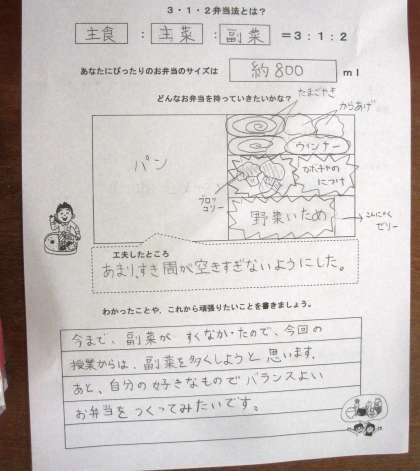 3・1・2弁当法とは？
主食 : 主菜 : 副菜 ＝3：1：2
あなたにぴったりのお弁当のサイズは 約800 ml
どんなお弁当を持っていきたいかな？
たまごやき
からあげ
パン
ウィンナー
ブロッコリー
カボチャのにつけ
野菜いため
こんにゃくゼリー
工夫したところ
あまり、すき間が空きすぎないようにした。
わかったことや、これから頑張りたいことを書きましょう。
今まで、副菜が すくなかったので、今回の
授業からは、副菜を多くしようと思います。
あと、自分の好きなもので バランスよい
お弁当をつくってみたいです。